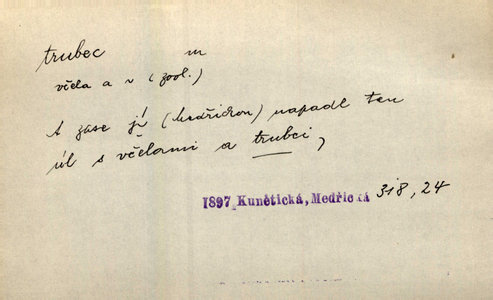 trubec m
včela a v (zool.)
A zase jí (Medřickou) napadl ten
úl s včelami a trubci,
1897 Kunětická, Medřická 318, 24